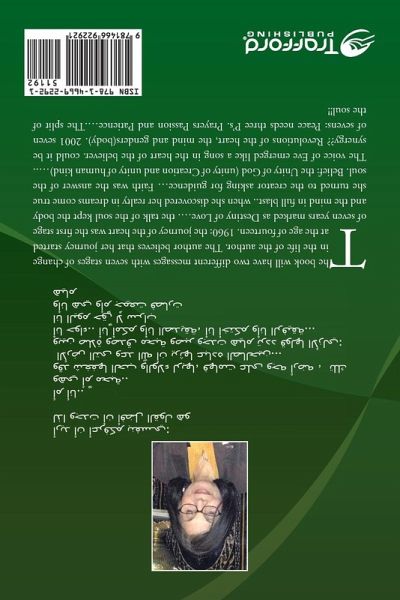 أريد أن أعرفكم بنفسي:
لذا وجدت أن أفضل القول هو
أنا أم ..
وهي أم محبة..
الأرض التي وعد الله أن يرثها عباده الصالحين...
هيام
The book will have two different messages with seven stages of change
in the life of the author. The author believes that her journey started
at the age of fourteen. 1960: the journey of the heart was the first stage
of seven years marked as Destiny of Love.... the talk of the soul kept the body
and the mind in full blast. when she discovered her reality in dreams come true
she turned to the creator asking for guidence... Faith was the answer of the
soul. Belief: the Unity of God (unity of Creation and unity of human kind).....
The voice of Eve emerged like a song in the heart of the believer. could it be
synergy?? Revolutions of the heart, the mind and genders(body). 2001 seven
of sevens: Peace needs three P's. Prayers Passion and Patience....The split of
the soul!!
Trafford
PUBLISHING
ISBN 978-1-4669-2292-1
51192
9 781466 922921